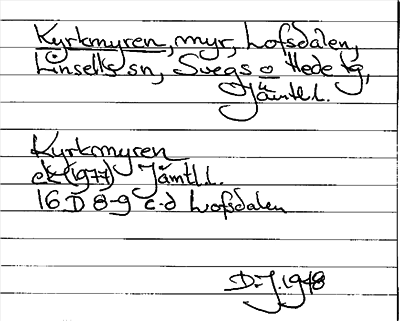 Kyrkmyren, myr, Lofsdalen,
Linsells sn, Svegs o Hede tg,
Jämtl.l.
Kyrkmyren
ek(1977) Jämtl.l.
16D 8-9 c-d Lofsdalen
D.J. 1948